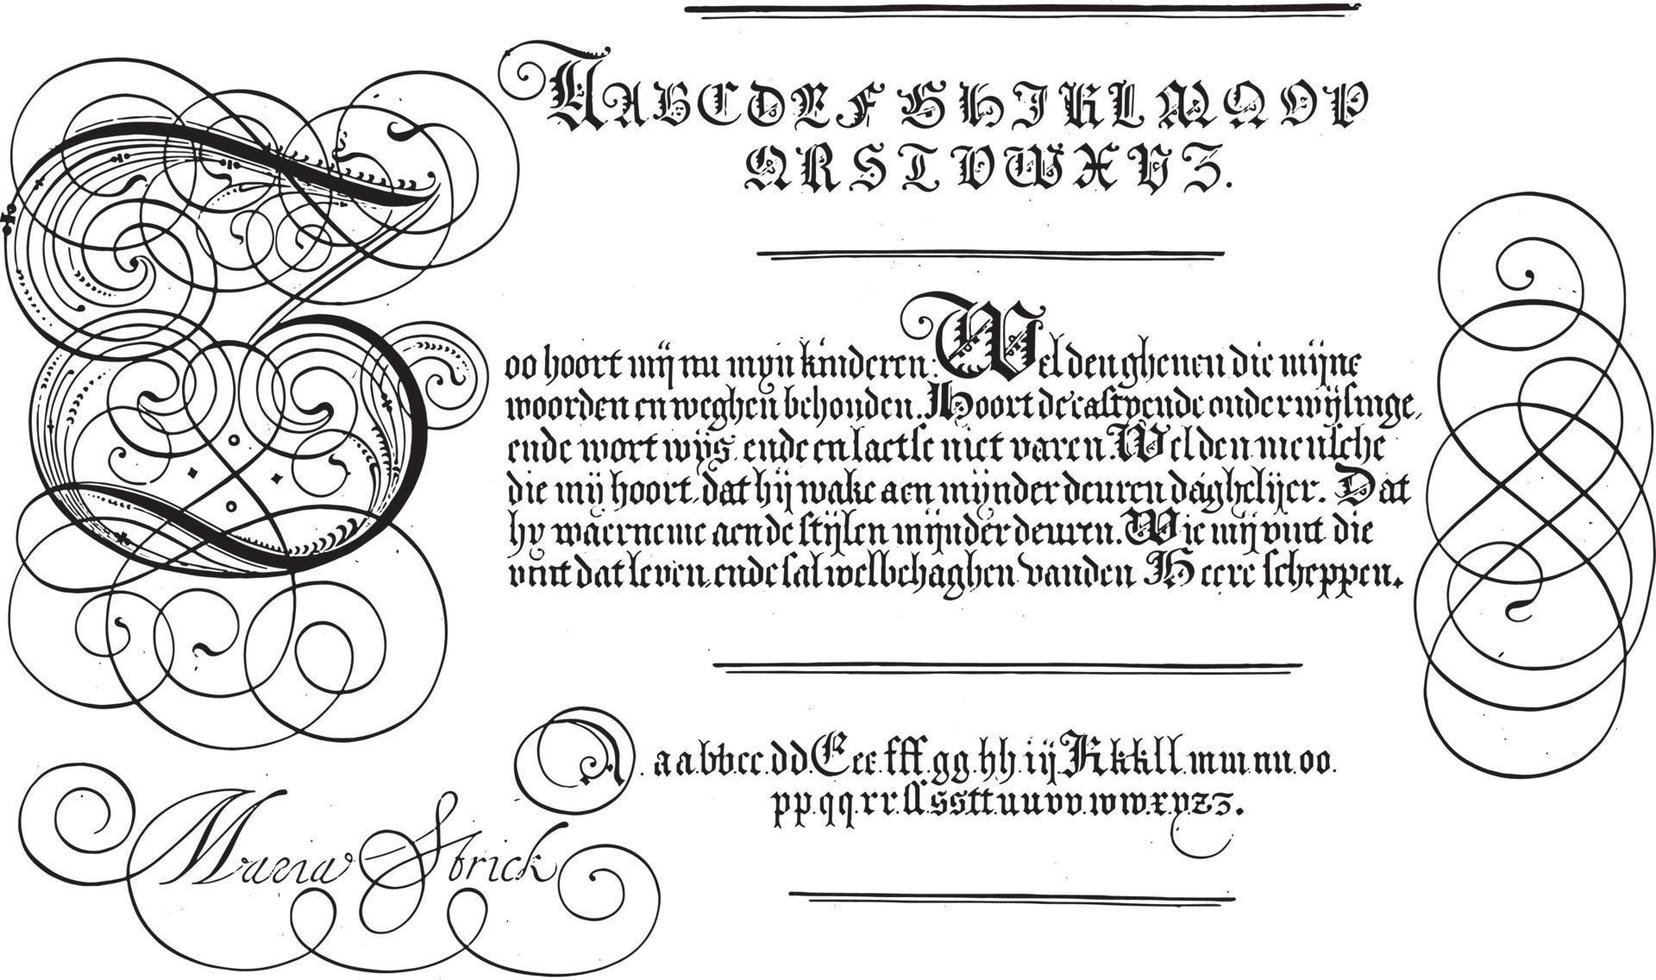 A A B C D E F G H I K L M N O P
Q R S T V W X Y Z.
Zoo hoort mij nu mijn kinderen: Wel den ghenen die mijne
woorden en weghen behouden. Hoort de castyende onderwijsinge,
ende wort wijs, ende en laetse niet varen. Wel den mensche
die mij hoort, dat hij wake aen mijnder deuren dághelijcx. Dat
hy waerneme aen de stijlen mijnder deuren. Wie mij vint die
vint dat leven, ende sal welbehaghen vanden Heere scheppen.
A. a a. b b c c. d d E e e. f f f. g g. h h. i ij K k k l l. m m n n o o.
p p. q q. r r. ſſ s s t t u u v v. w w x y z z.
Maria Strick